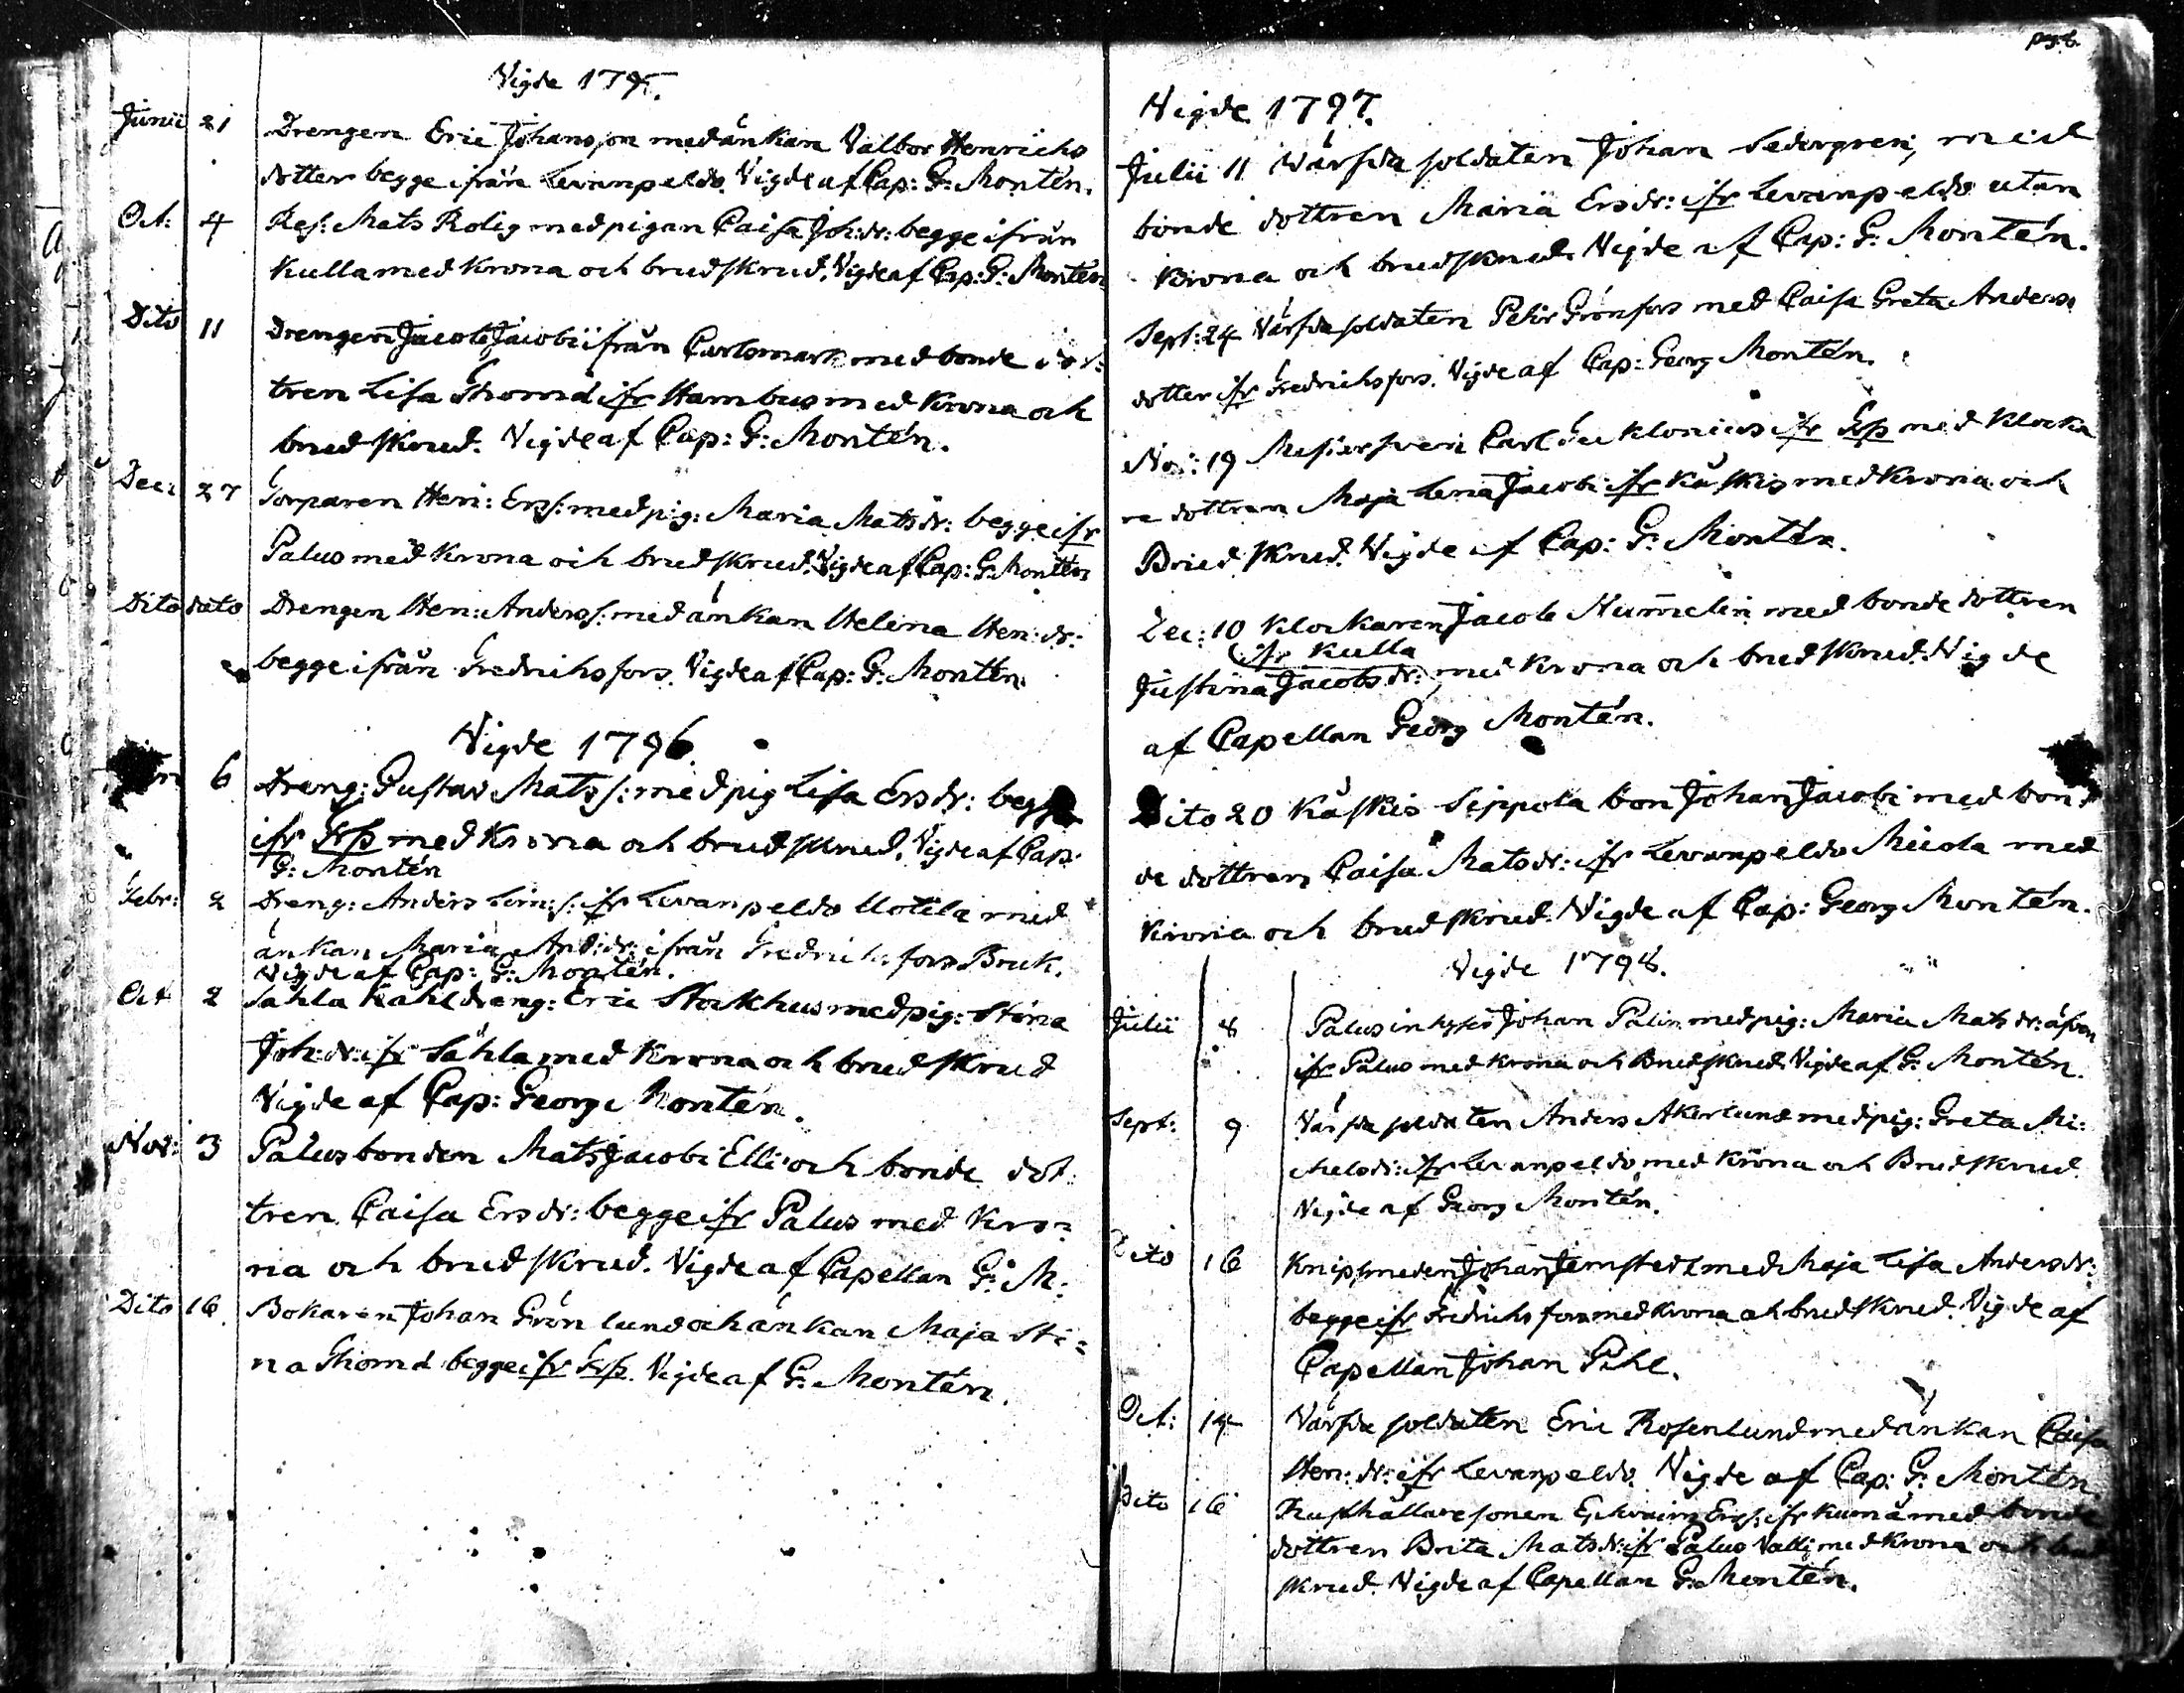 Vigde 1795.
Junii 21 Drengen Eric Johansson med änkan Valbor Henrichs
dotter begge ifrån Levanpeldo. Vigde af Cap: G: Montén.
Oct: 4 Res: Mats Rolig med pigan Caisa Joh: dr: begge ifrån
Kulla med Krona och brudskrud. Vigde af Cap: G: Montén
Dito 11 Drengen Jacob Jacobi ifrån Carlsmark med bonde dot:
tren Lisa Thomæ ifr Hambus med Krona och
brudskrud. Vigde af Cap: G: Montén.
Dec: 27 Torparen Hen: Ers: med pig: Maria Mats dr: begge ifr
Palus med Krona och brudskrud. Vigde af Cap: G. Montén
Dito dato Drengen Hen: Anders: med änkan Helena Hen: dr:
begge ifrån Fredrichsfors. Vigde af Cap: G: Montén.
Vigde 1796.
6 Dreng: Gustav Mats s: med pig Lisa Ers dr: begge
ifr Frfs med Krona och brudskrud. Vigde af Cap:
G: Montén
Febr: 2 Dreng: Anders Sim: s: ifr Levanpeldo Uotila med
änkan Maria And: dr: ifrån Fredrichsfors Bruk.
Vigde af Cap: G: Montén.
Oct 2 Sahla Kahl dreng: Eric Stockhus med pig: Stina
Joh: dr: ifr Sahla med Krona och brudskrud
Vigde af Cap: Georg Montén.
Nov: 3 Palus bonden Mats Jacobi Elli och bonde dot
tren Caisa Ers dr: begge ifr Palus med Kro=
na och brudskrud. Vigde af Capellan G: M:
Dito 16. Bokaren Johan Grönlund och änkan Maja Sti=
na Thomæ begge ifr Frfs. Vigde af G: Montén.
Vigde 1797.
Julii 11 Wärfda soldaten Johan Sedergren, med
bonde dottren Maria Ers dr: ifr Levanpeldo utan
Krona och brudskrud. Vigde af Cap: G: Montén.
Sept: 24 Värfda soldaten Petter Grönfors med Caisa Greta Anders
dotter ifr Fredrichsfors. Vigde af Cap: Georg Montén.
Nov: 19 Mestersven Carl Fec Klonius ifr Frfs med Klocka
re dottren Maja Lena Jacobi ifr Käskis med Krona och
Brudskrud. Vigde af Cap: G: Montén.
Dec: 10 Klockaren Jacob Numelin med bonde dottren
ifr Kulla
Justina Jacobs dr: med Krona och brudskrud. Vigde
af Capellan Georg Montén.
Dito 20 Käskis Seppola bon Johan Jacobi med bon
de dottren Caisa Mats dr: ifr Levanpeldo Micola med
Krona och brudskrud. Vigde af Cap: Georg Montén.
Vigde 1798.
Julii 8 Palus inhyses Johan Palin med pig: Maria Mats dr: äfven
ifr Palus med Krona och Brudskrud. Vigde af G: Montén.
Sept: 9 Värfda soldaten Anders Åkerlund med pig: Greta Mi:
chels dr: ifr Levanpeldo med Krona och Brudskrud
Vigde af Georg Montén.
Dito 16 Knipsmeden Johan Jernstedt med Maja Lisa Anders dr:
begge ifr Fredrichsfors med Krona och brudskrud. Vigde af
Capellan Johan Pihl.
Oct: 14 Värfda soldaten Eric Rosenlund med änkan Caisa
Hen: dr: ifr Levanpeldo. Vigde af Cap: G: Montén.
Dito 16 Rusthållare sonen Ers: ifr Kumå med bonde
dottren Brita Mats dr: ifr Palus Valli med Krona och brud
skrud. Vigde af Capellan G: Montén.